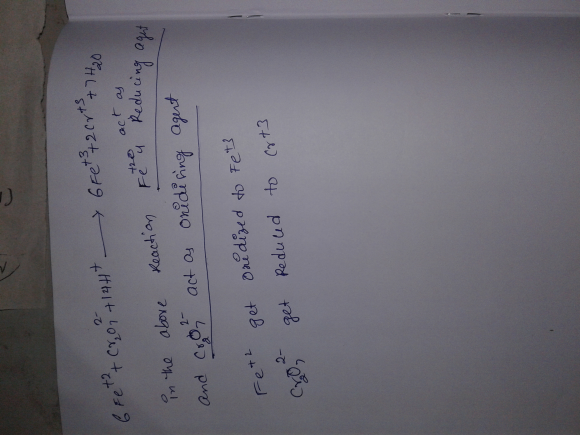 6Fe+2 + Cr2O7 2- + 14H+ → 6Fe+3 + 2Cr+3 + 7H2O
in the above Reaction Fe+2 act as Reducing agent
and Cr2O7 2- act as oxidising agent
Fe+2 get oxidized to Fe+3
Cr2O7 2- get Reduced to Cr+3